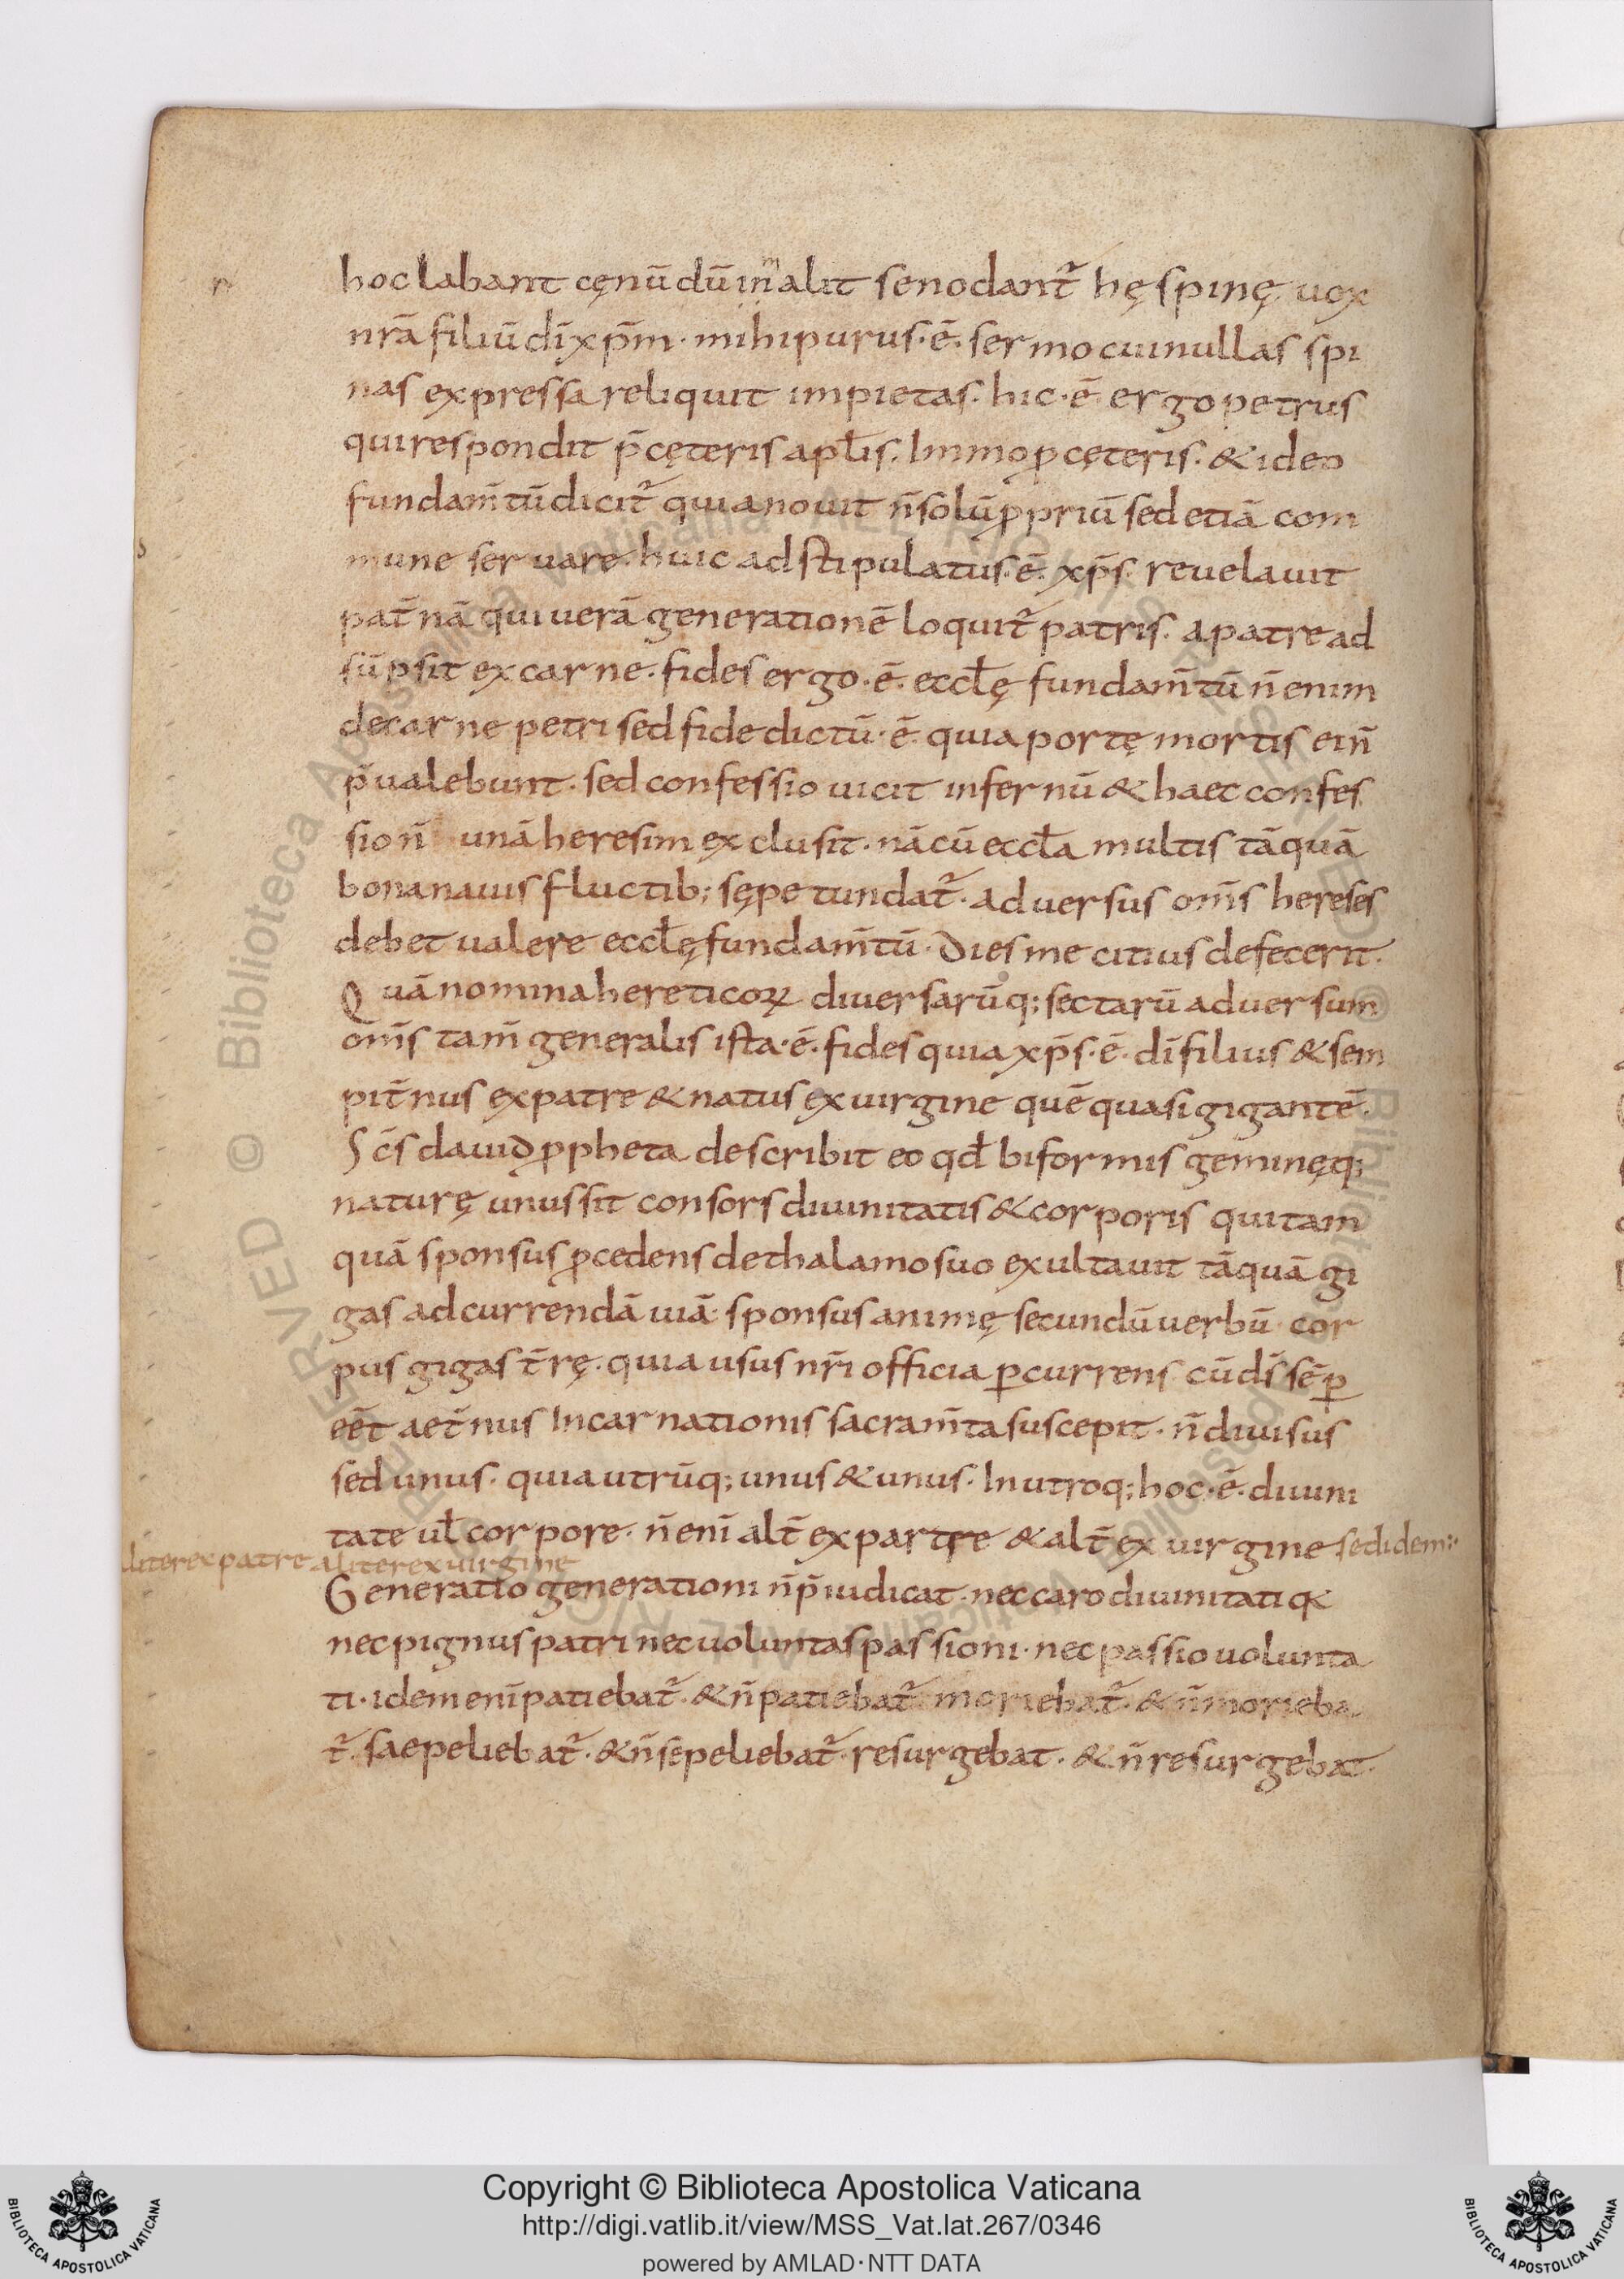 hoc labant cęnū dū in̄ alit se nodant᷑ hę spinę uox
m
n
nrā filiū dī xp̄m · mihi purus · ē · sermo cui nullas spi
nas expressa reliquit impietas · hic · ē ergo petrus
qui respondit p̄ cęteris apłis. Immo ꝓ cęteris · & ideo
fundam̄tū dicit᷑ quia nouit n̄ solū ꝓpriū sed etiā com
mune seruare · huic adstipulatus · ē · xp̄s · reuelauit
s
pat̄nā qui uerā generationē loquit᷑ patris · a patre ad
sūpsit ex carne · fides ergo · ē · eccłę fundam̄tū n̄ enim
de carne petri sed fide dictū · ē · quia portę mortis ei n̄
p̄ualebunt · sed confessio uicit infernū & haec confes
sio n̄ unā heresim exclusit · nā cū eccła multis tāquā
bona nauis fluctib; sępe tundat᷑ · aduersus om̄s hereses
debet ualere eccłę fundam̄tū · Dies me citius defecerit ·
Quā nomina hereticoꝝ diuersarūq; sectarū aduersum
om̄s tam̄ generalis ista · ē · fides quia xp̄s · ē · dī filius & sem
pit̄nus ex patre & natus ex uirgine quē quasi gigantē ·
Sc̄s dauid ꝓpheta describit eo qd̄ biformis geminęq;
naturę unus sit consors diuinitatis & corporis qui tam
quā sponsus ꝓcedens de thalamo suo exultauit tāquā gi
gas ad currendā uiā · sponsus animę secundū uerbū · cor
pus gigas t̄rę · quia usus nr̄i officia ꝑcurrens cū ds̄ sēꝑ
eēt aet̄nus Incarnationis sacram̄ta suscepit · n̄ diuisus
sed unus · quia utrūq; unus & unus · In utroq; hoc · ē · diuini
tate uł corpore · n̄ eni̅ alt̄ ex partre & alt̄ ex uirgine sed idem
aliter ex patre aliter ex uirgine
Generatio generationi n̄ p̄iudicat · nec caro diuinitati q&
nec pignus patri nec uoluntas passioni · nec passio uolunta
ti · idem eni̅ patiebat᷑ · & n̄ patiebat᷑ moriebat᷑ · & n̄ morieba
t᷑ · saepeliebat᷑ · & n̄ sepeliebat᷑ · resurgebat · & n̄ resurgebat ·
© Biblioteca Apostolica Vaticana
Copyright © Biblioteca Apostolica Vaticana
http://digi.vatlib.it/view/MSS_Vat.lat.267/0346
powered by AMLAD·NTT DATA
BIBLIOTECA APOSTOLICA VATICANA
BIBLIOTECA APOSTOLICA VATICANA